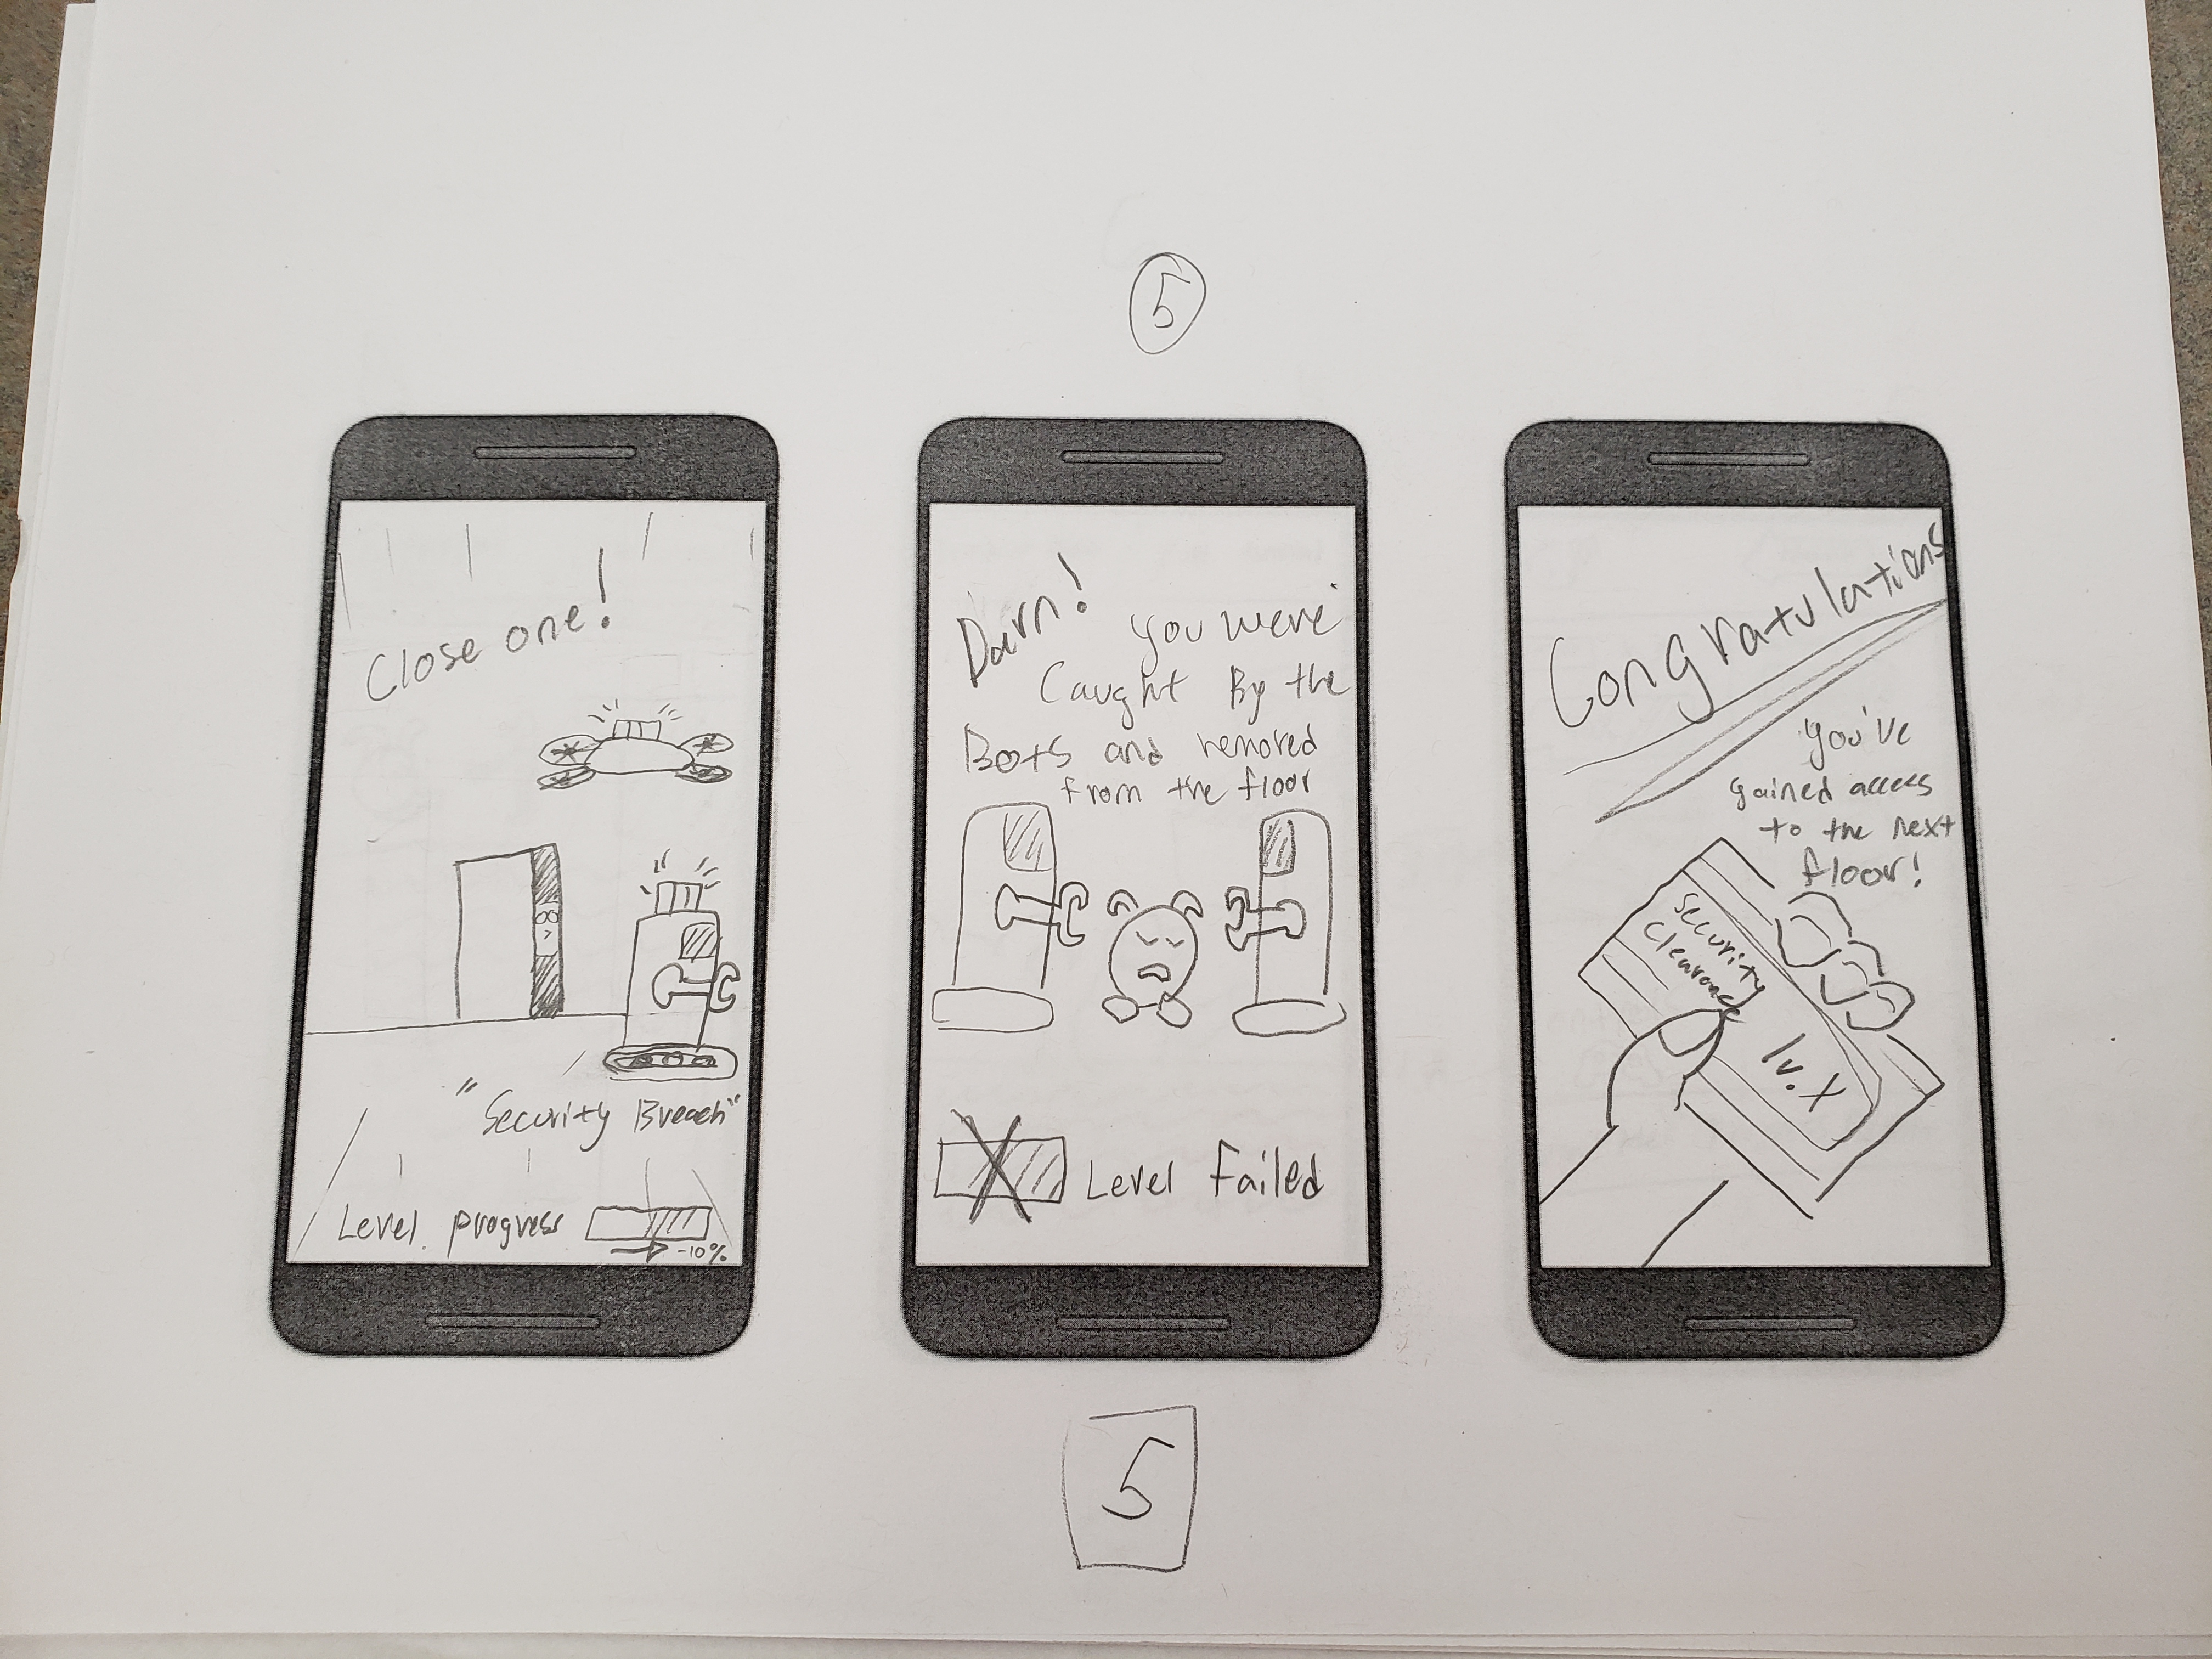 5
Close one!
"Security Breach"
Level progress
-10%
Darn! You were
Caught By the
Bots and removed
from the floor
Level Failed
Congratulations
you've
gained access
to the next
floor!
Security
Clearance
lv. X
5